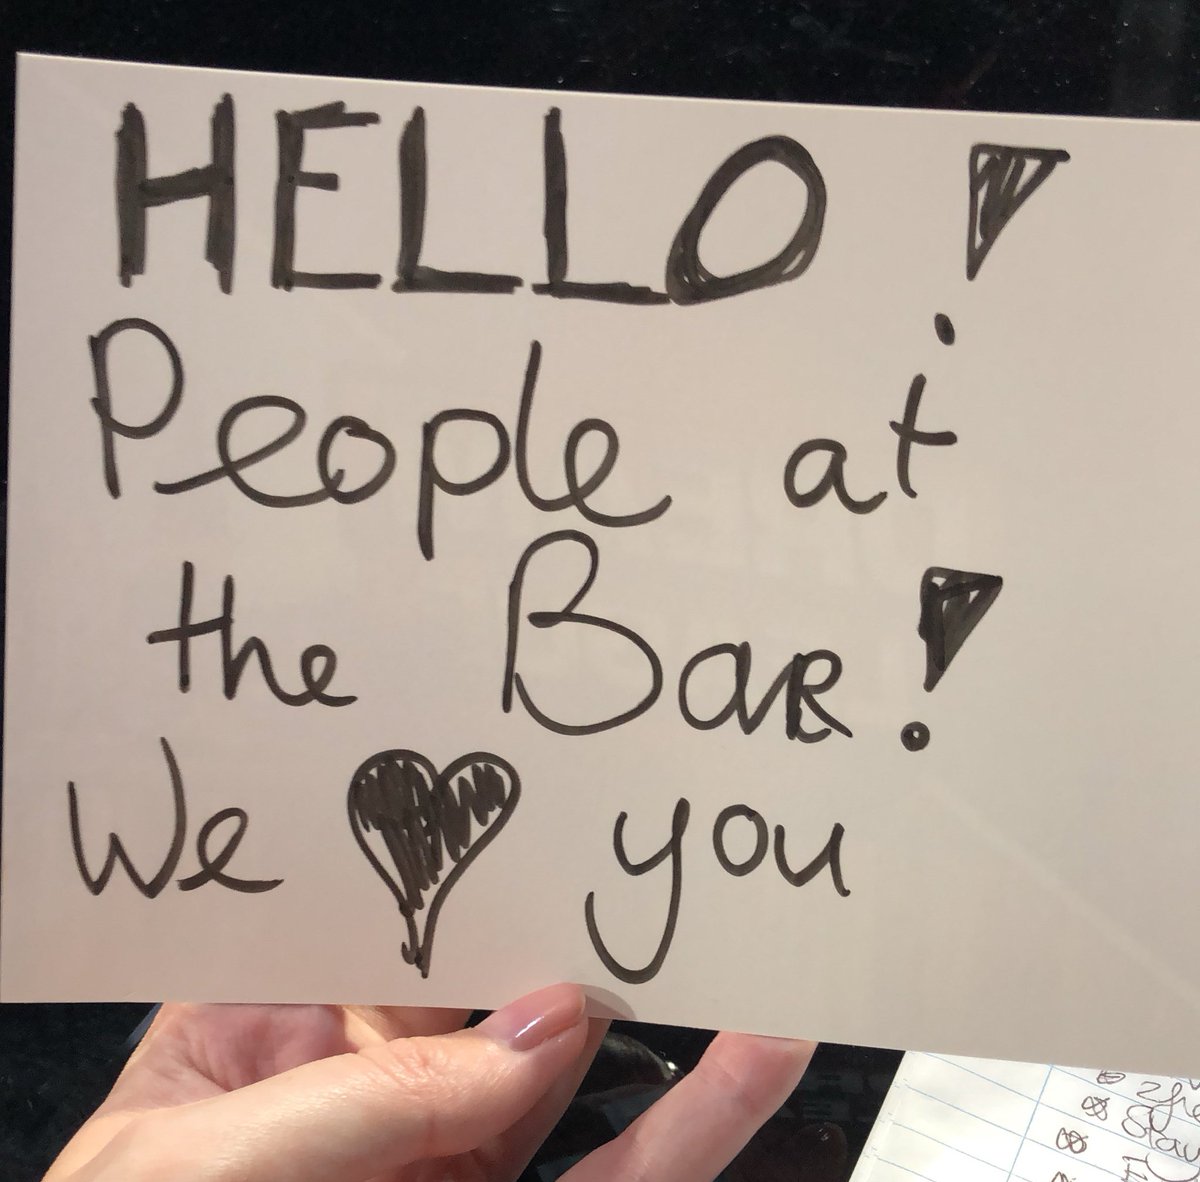 HELLO!
People at
the BaR!
We ♥ you